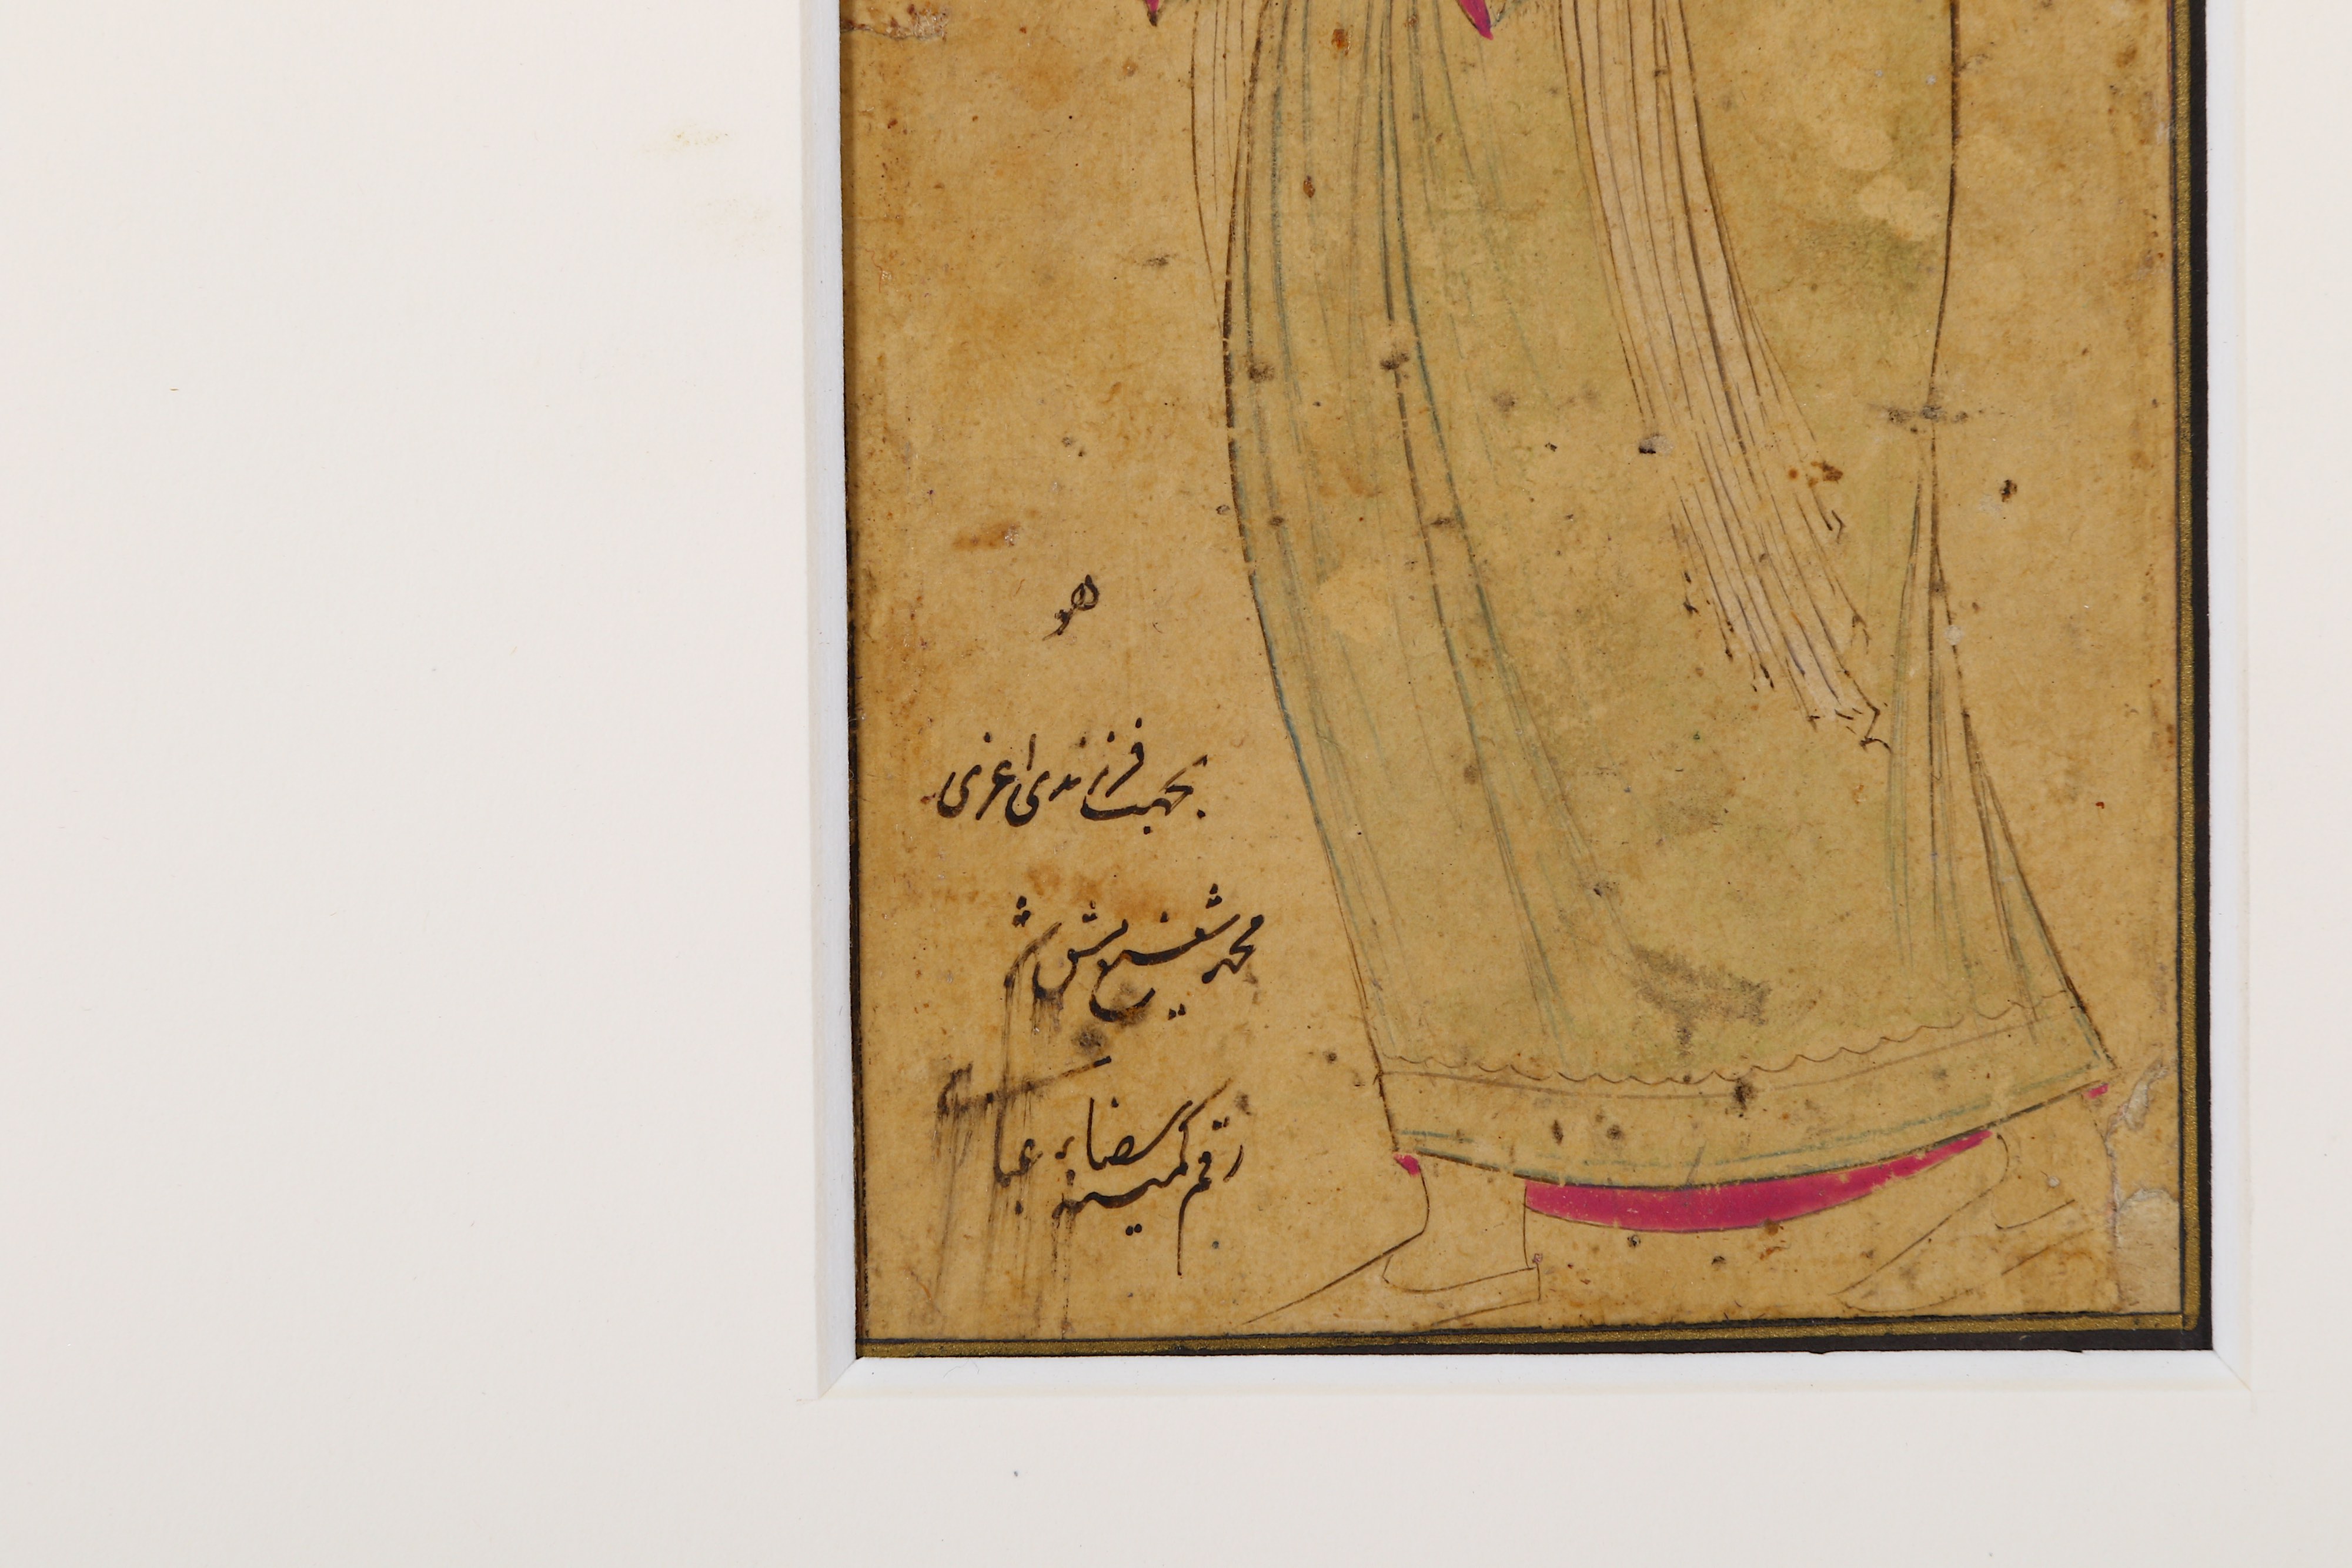 هو
بجهت فرزندی اعزی
محمد شفیع مشق شد
رقم کمینه رضاء عبا